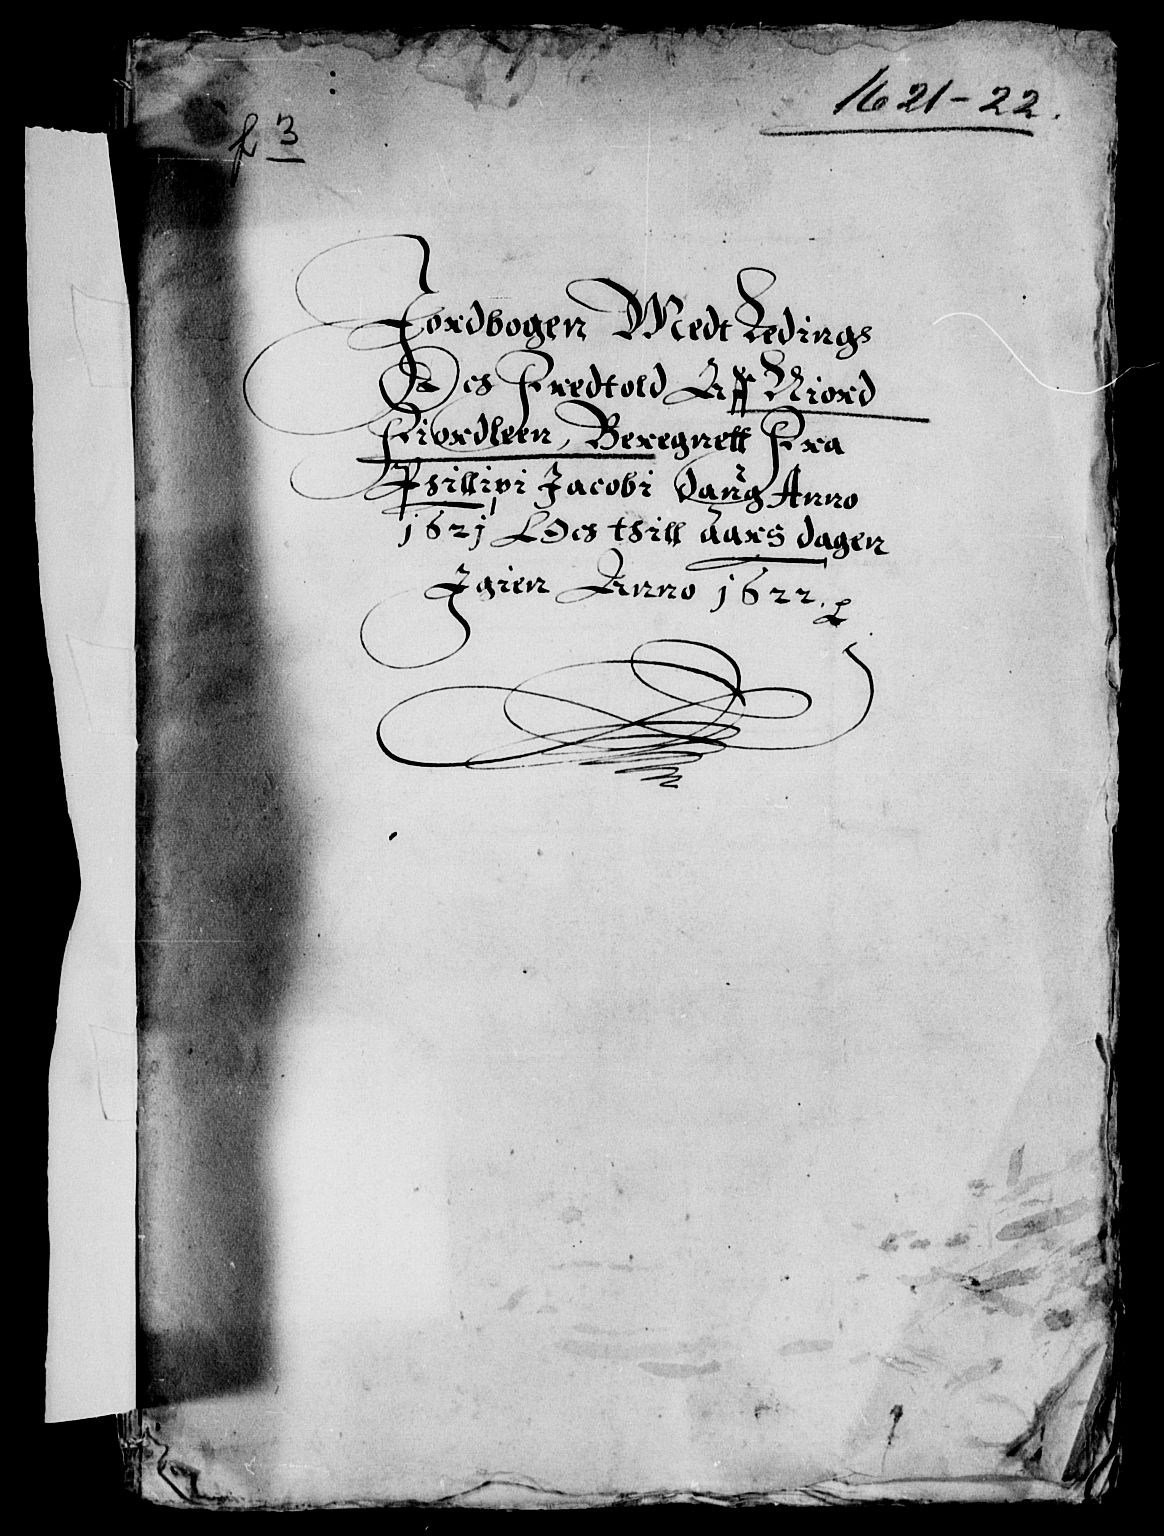 1621-22.
L 3
Jordbogen Medt Ledings
Oes Fredtold Aff Niord
Fiordleen, Beregnett Fra
Philippi Jacobi Daug Anno
1621 Oes thill aars dagen
Igien Anno 1622.